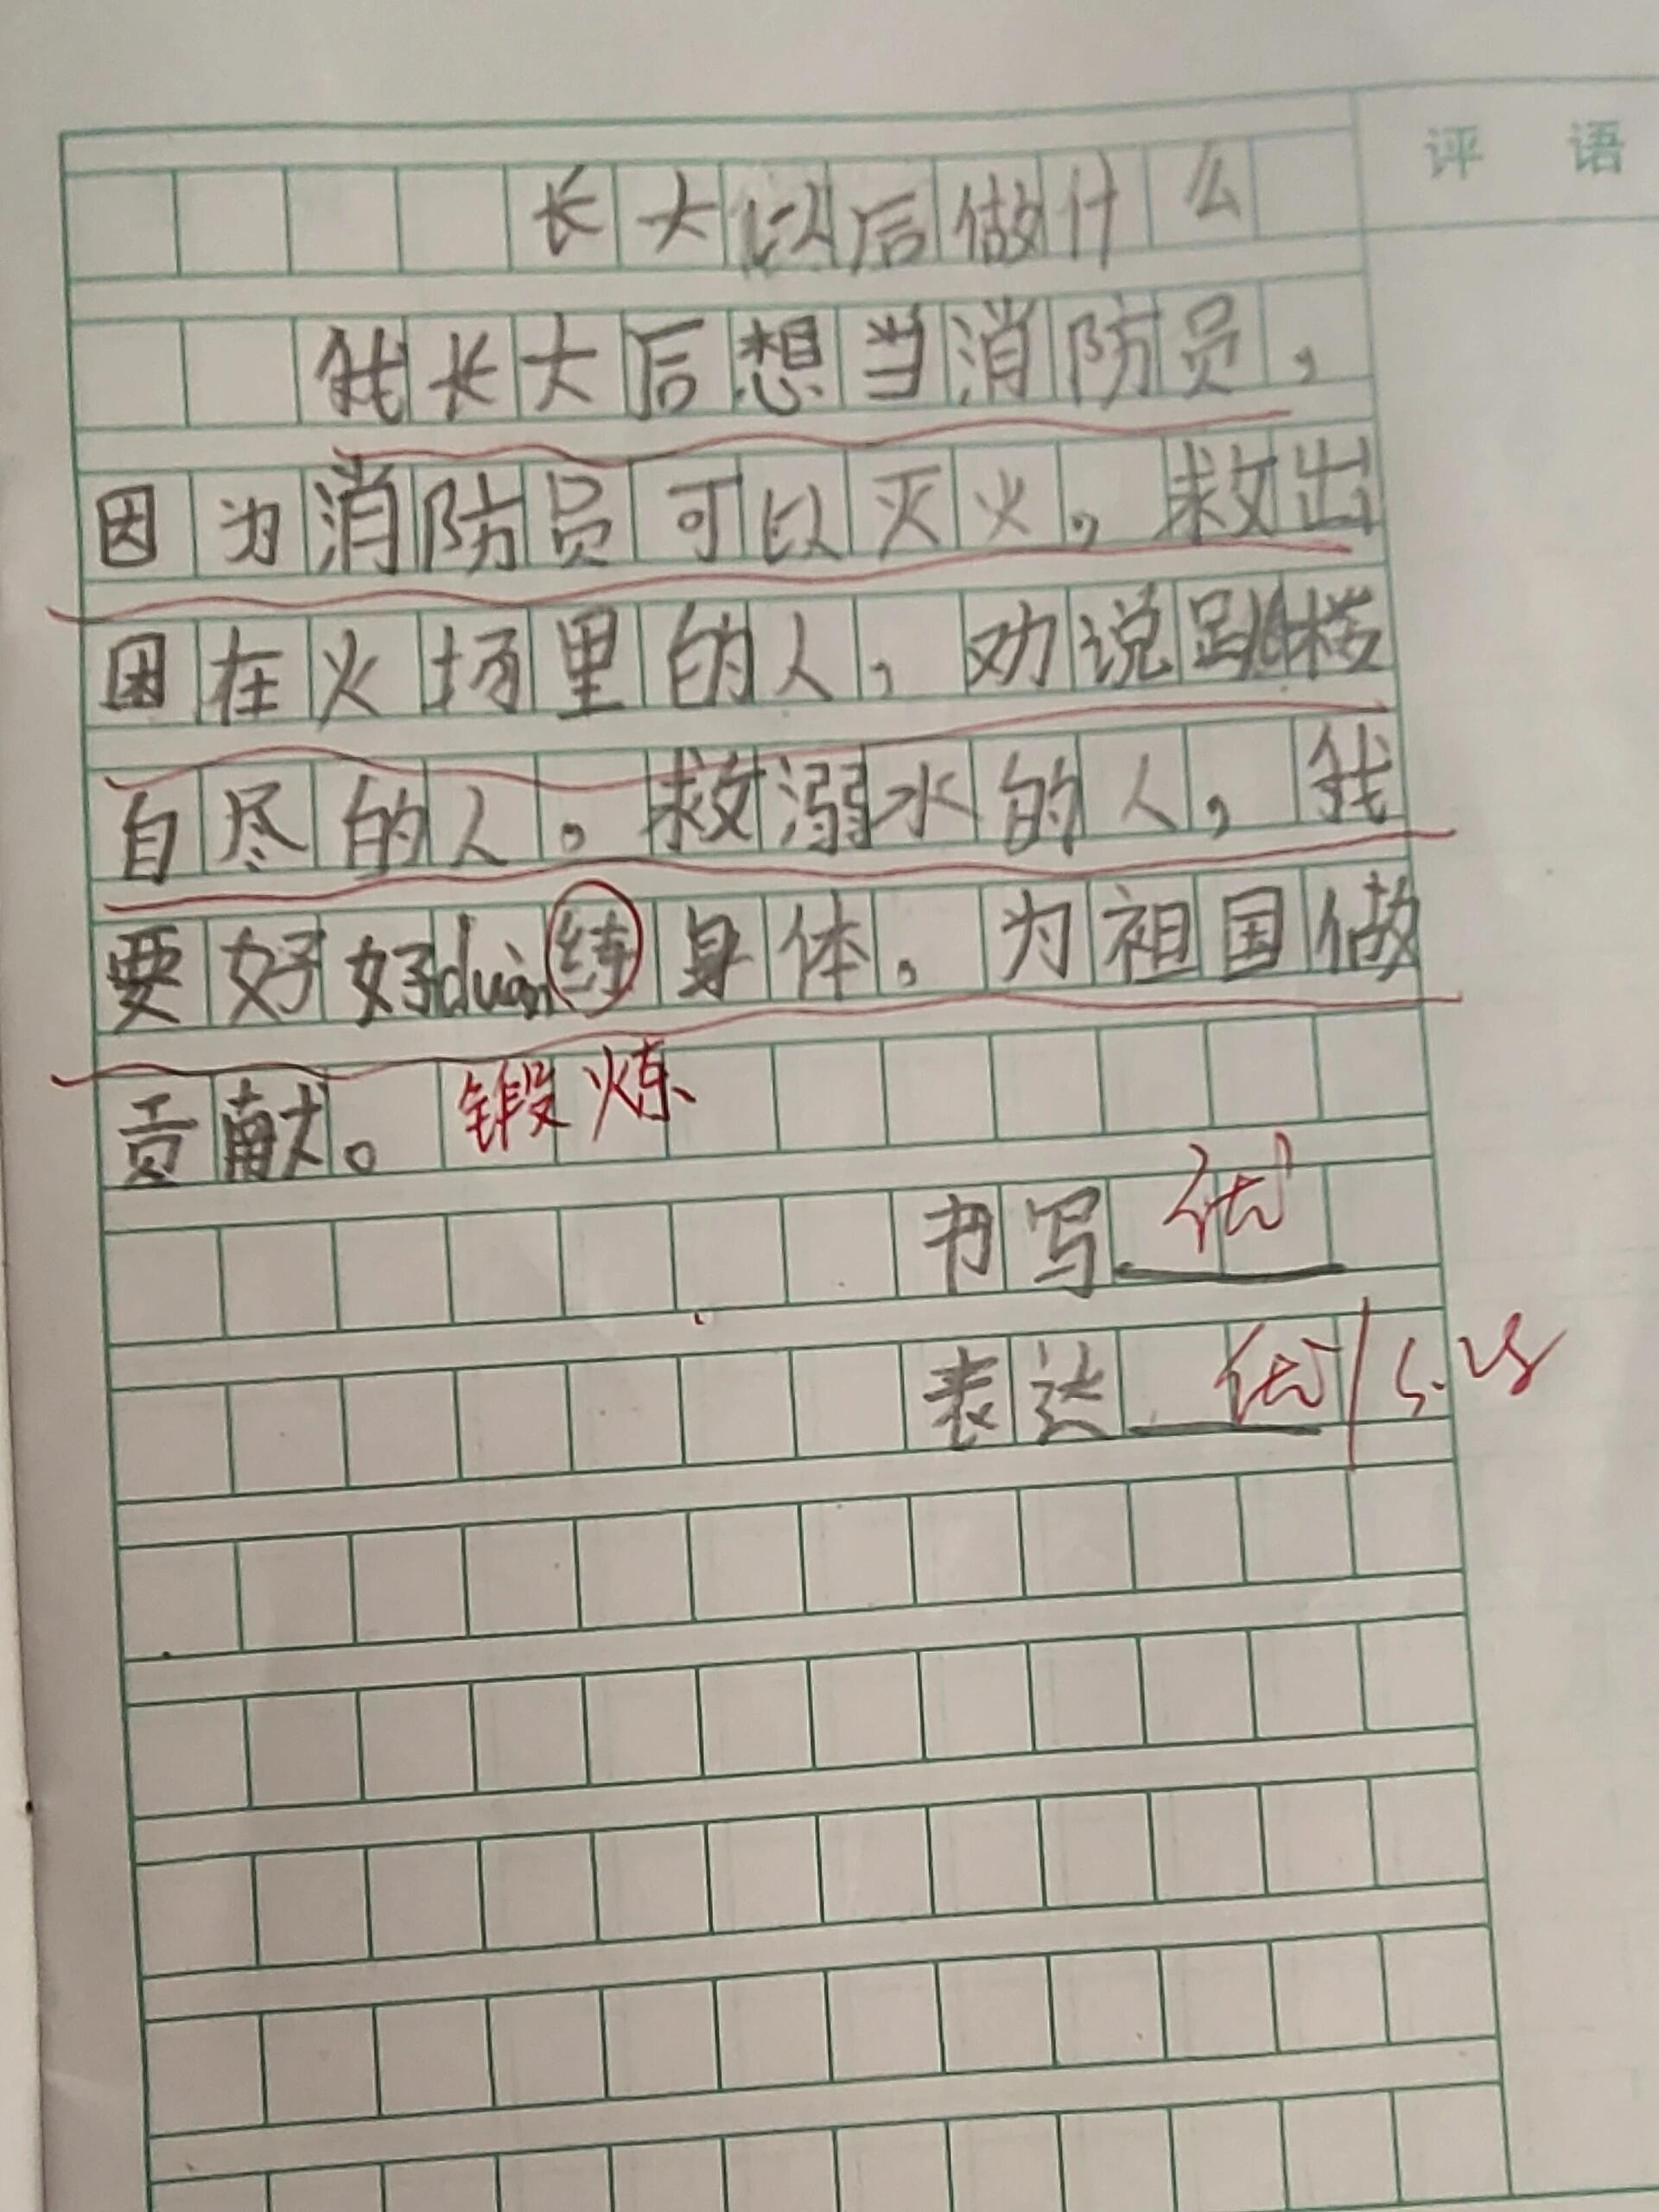 评 语
长大以后做什么
我长大后想当消防员，
因为消防员可以灭火，救出
困在火场里的人，劝说跳楼
自尽的人。救溺水的人，我
要好好duàn练身体，为祖国做
贡献。 锻炼
书写 优
表达 优/5.25